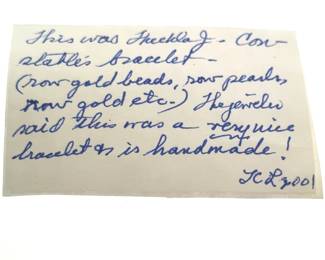 This was Thekla J- Con-
stable's bracelet -
(row gold beads, row pearls,
row gold etc.) The jeweler
said this was a very nice
bracelet & is handmade!
TCL 2001